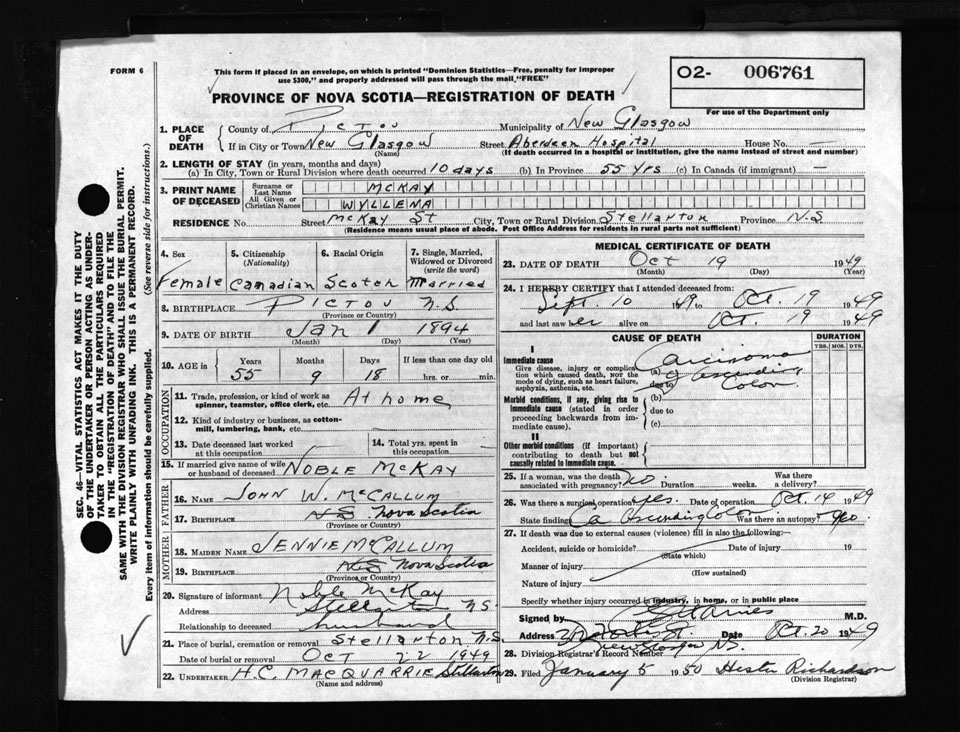 FORM 6
This form if placed in an envelope, on which is printed "Dominion Statistics—Free, penalty for improper
use $300," and properly addressed will pass through the mail "FREE"
O2- 006761
For use of the Department only
PROVINCE OF NOVA SCOTIA—REGISTRATION OF DEATH
1. PLACE OF DEATH County of Pictou Municipality of New Glasgow
If in City or Town New Glasgow Street Aberdeen Hospital House No. —
(Name) (If death occurred in a hospital or institution, give the name instead of street and number)
2. LENGTH OF STAY (in years, months and days)
(a) In City, Town or Rural Division where death occurred 10 days (b) In Province 55 yrs (c) In Canada (if immigrant) —
3. PRINT NAME OF DECEASED Surname or Last Name McKAY
All Given or Christian Names WYLLENA
RESIDENCE No. Street McKay St City, Town or Rural Division Stellarton Province N.S
(Residence means usual place of abode. Post Office Address for residents in rural parts not sufficient)
4. Sex 5. Citizenship (Nationality) 6. Racial Origin 7. Single, Married, Widowed or Divorced (write the word)
Female Canadian Scotch Married
8. BIRTHPLACE Pictou N.S
(Province or Country)
9. DATE OF BIRTH Jan 1 1894
(Month) (Day) (Year)
10. AGE in Years Months Days If less than one day old
55 9 18 hrs. or min.
OCCUPATION
11. Trade, profession, or kind of work as spinner, teamster, office clerk, etc. At home
12. Kind of industry or business, as cotton-mill, lumbering, bank, etc.
13. Date deceased last worked at this occupation 14. Total yrs. spent in this occupation —
15. If married give name of wife or husband of deceased NOBLE McKAY
FATHER
16. NAME JOHN W. McCALLUM
17. BIRTHPLACE NS Nova Scotia
(Province or Country)
MOTHER
18. MAIDEN NAME JENNIE McCALLUM
19. BIRTHPLACE NS Nova Scotia
(Province or Country)
20. Signature of informant Noble McKay
Address Stellarton NS.
Relationship to deceased husband
21. Place of burial, cremation or removal Stellarton N.S.
Date of burial or removal OCT 22 1949
22. UNDERTAKER H.C. MACQUARRIE Stellarton
(Name and address)
MEDICAL CERTIFICATE OF DEATH
23. DATE OF DEATH Oct 19 1949
(Month) (Day) (Year)
24. I HEREBY CERTIFY that I attended deceased from:
Sept. 10 1949 to Oct. 19 1949
and last saw her alive on Oct. 19 1949
CAUSE OF DEATH DURATION
YRS. MOS. DYS.
I
Immediate cause
Give disease, injury or complication which caused death, not the mode of dying, such as heart failure, asphyxia, asthenia, etc.
(a) Carcinoma
of Ascending
due to Colon
Morbid conditions, if any, giving rise to immediate cause (stated in order proceeding backwards from immediate cause).
(b)
due to
(c)
II
Other morbid conditions (if important) contributing to death but not causally related to immediate cause.
25. If a woman, was the death associated with pregnancy? no. Duration weeks. Was there a delivery?
26. Was there a surgical operation yes. Date of operation Oct. 14 1949
State finding Ca Ascending Colon Was there an autopsy?
27. If death was due to external causes (violence) fill in also the following:
Accident, suicide or homicide? Date of injury 19
(State which)
Manner of injury
(How sustained)
Nature of injury
Specify whether injury occurred in industry, in home, or in public place
M.D.
Address New Glasgow NS. Date Oct. 20 1949
28. Division Registrar's Record Number
29. Filed January 5 1950 Hester Richardson
(Division Registrar)
SEC. 46—VITAL STATISTICS ACT MAKES IT THE DUTY
OF THE UNDERTAKER OR PERSON ACTING AS UNDER-
TAKER TO OBTAIN ALL THE PARTICULARS REQUIRED
IN THE "REGISTRATION OF DEATH" AND TO FILE THE
SAME WITH THE DIVISION REGISTRAR WHO SHALL ISSUE THE BURIAL PERMIT.
WRITE PLAINLY WITH UNFADING INK. THIS IS A PERMANENT RECORD.
Every item of information should be carefully supplied. (See reverse side for instructions.)